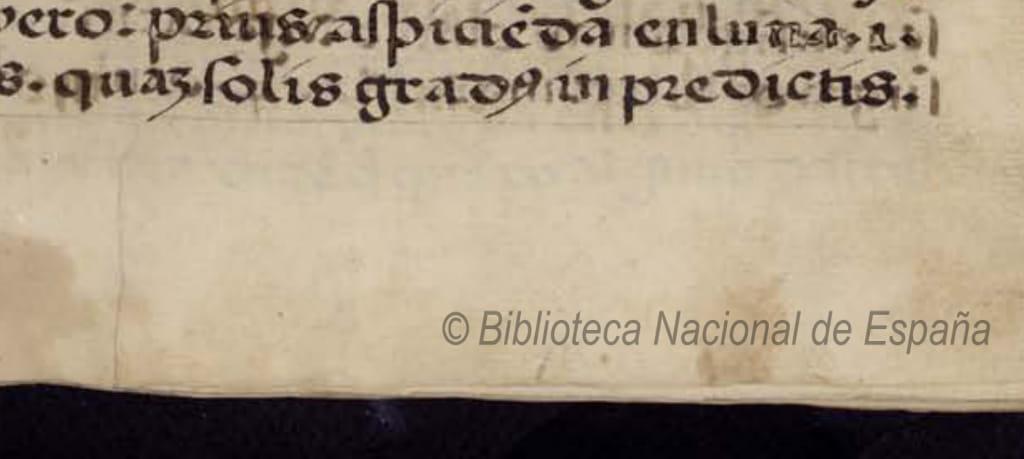 vero: prius aspiciēda en luna. i.
s. quaꝫ solis gradꝰ in predictis.
© Biblioteca Nacional de España